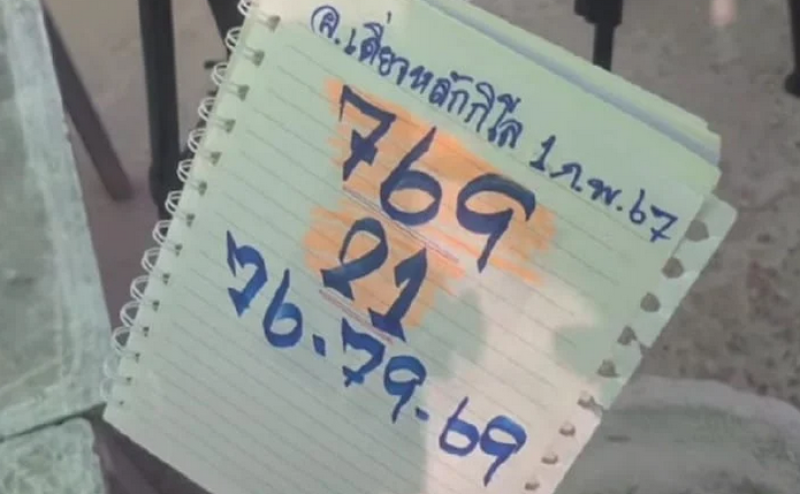 อ.เดี่ยวหลักกิโล 1.ก.พ.67
769
21
76.79.69